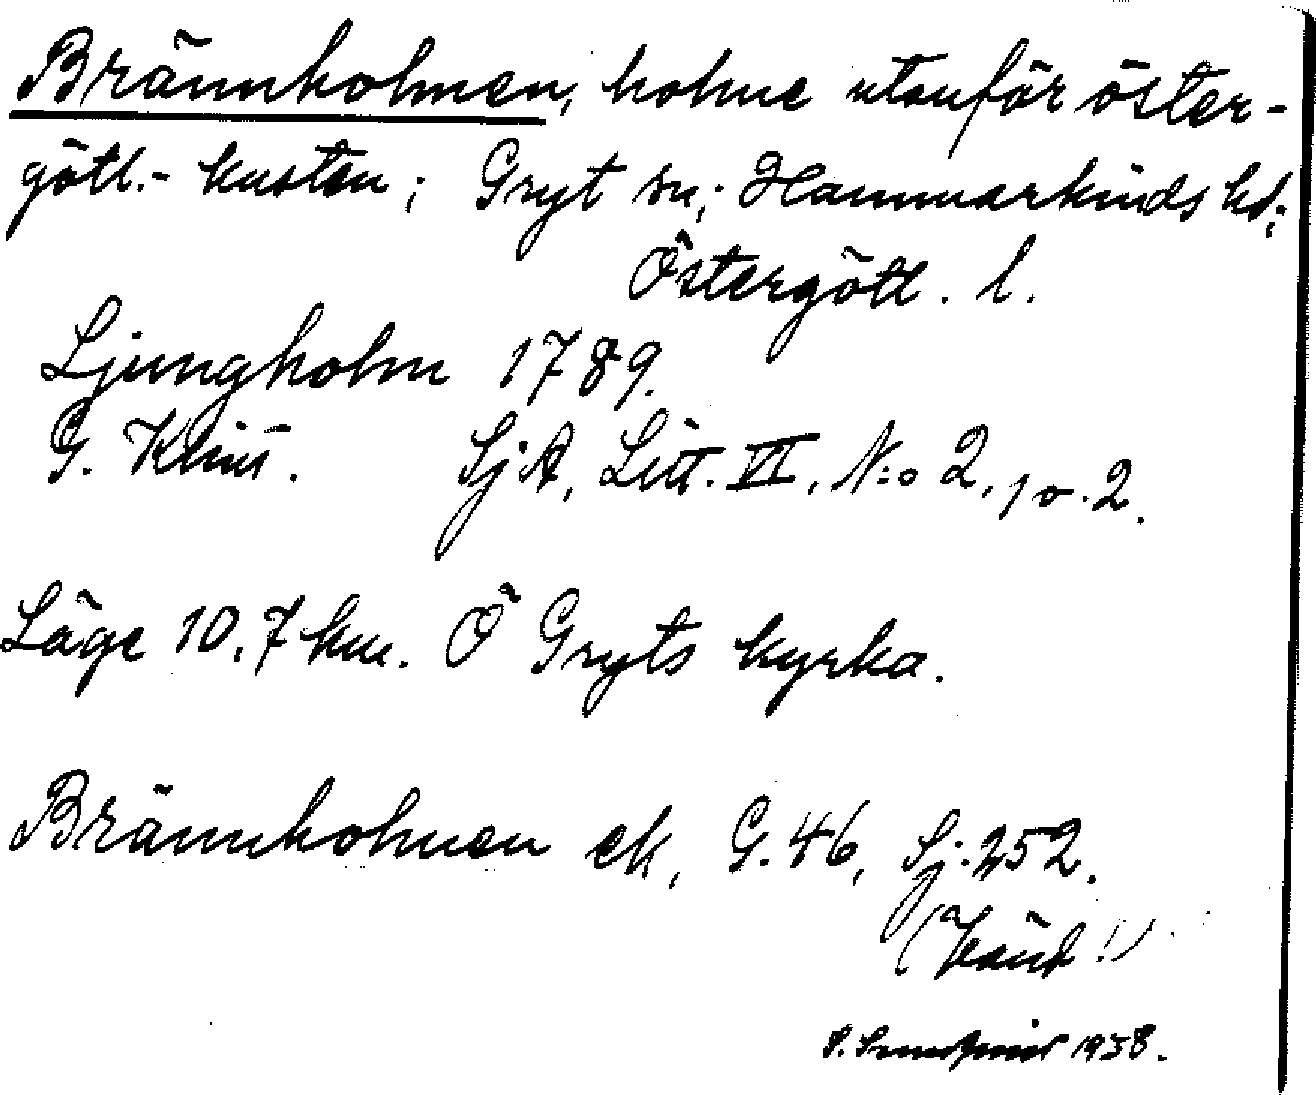 Brännholmen, holme utanför öster-
götl.- kusten; Gryt sn; Hammarkinds hd;
Östergötl. l.
Ljungholm 1789.
G. Klint. SjA, Litt. VI, N:o 2, 1 o. 2.
Läge 10,7 km. Ö Gryts kyrka.
Brännholmen ek, G. 46, Sj. 252.
1938.